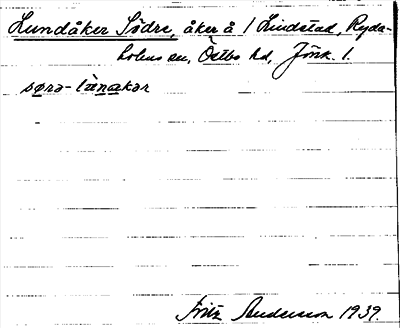 Lundåker Södre, åker å 1 Lindstad, Ryda-
holms sn, Östbo hd, Jönk. l.
sørə-lùnakər
Fritz Andersson 1939.